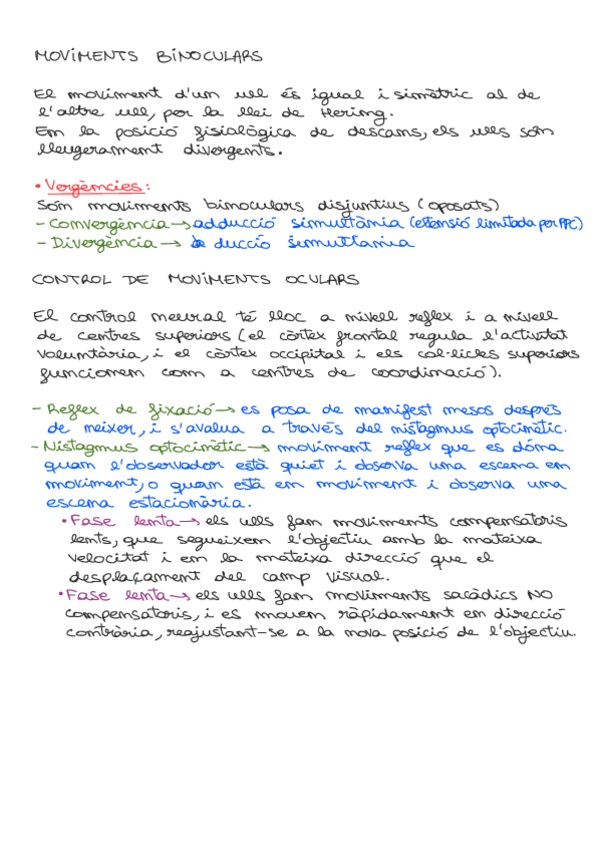 MOVIMENTS BINOCULARS
El moviment d'un ull és igual i simètric al de
l'altre ull, por la llei de Hering.
En la posició fisiològica de descans, els ulls són
lleugerament divergents.
• Vergències:
Són moviments binoculars disjuntius (oposats)
- Convergència → adducció simultània (extensió limitada per PPC)
- Divergència → abducció simultània
CONTROL DE MOVIMENTS OCULARS
El control neural té lloc a nivell reflex i a nivell
de centres superiors (el còrtex frontal regula l'activitat
voluntària, i el còrtex occipital i els col·licles superiors
funcionem com a centres de coordinació).
- Reflex de fixació → es posa de manifest mesos després
de neixer, i s'avalua a través del nistagmus optocinètic.
- Nistagmus optocinètic → moviment reflex que es dóna
quan l'observador està quiet i observa una escena en
moviment, o quan està en moviment i observa una
escena estacionària.
• Fase lenta → els ulls fan moviments compensatoris
lents, que segueixen l'objectiu amb la mateixa
velocitat i en la mateixa direcció que el
desplaçament del camp visual.
• Fase lenta → els ulls fan moviments sacàdics NO
compensatoris, i es mouen ràpidament en direcció
contrària, reajustant-se a la nova posició de l'objectiu.